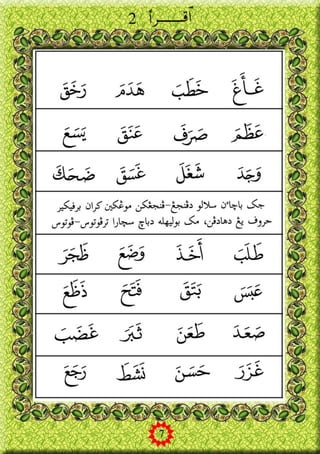 اَقــــرأ 2
غَـأَغَ خَطَبَ هَدَمَ رَخَقَ
عَظَمَ صَرَفَ عَنَقَ يَسَعَ
وَجَدَ شَغَلَ غَسَقَ ضَحَكَ
جک باچاءن سلالو دڤنجڠ-ڤنجڠکن موڠکين کران برفيکير
حروف يڠ دهادڤن، مک بوليهله دباچ سچارا ترڤوتوس-ڤوتوس
طَلَبَ أَخَذَ وَضَعَ ظَجَرَ
عَبَسَ بَتَقَ فَتَحَ ذَظَعَ
صَعَدَ طَعَنَ ثَبَرَ غَضَبَ
غَزَرَ حَسَنَ نَشَطَ رَجَعَ
7